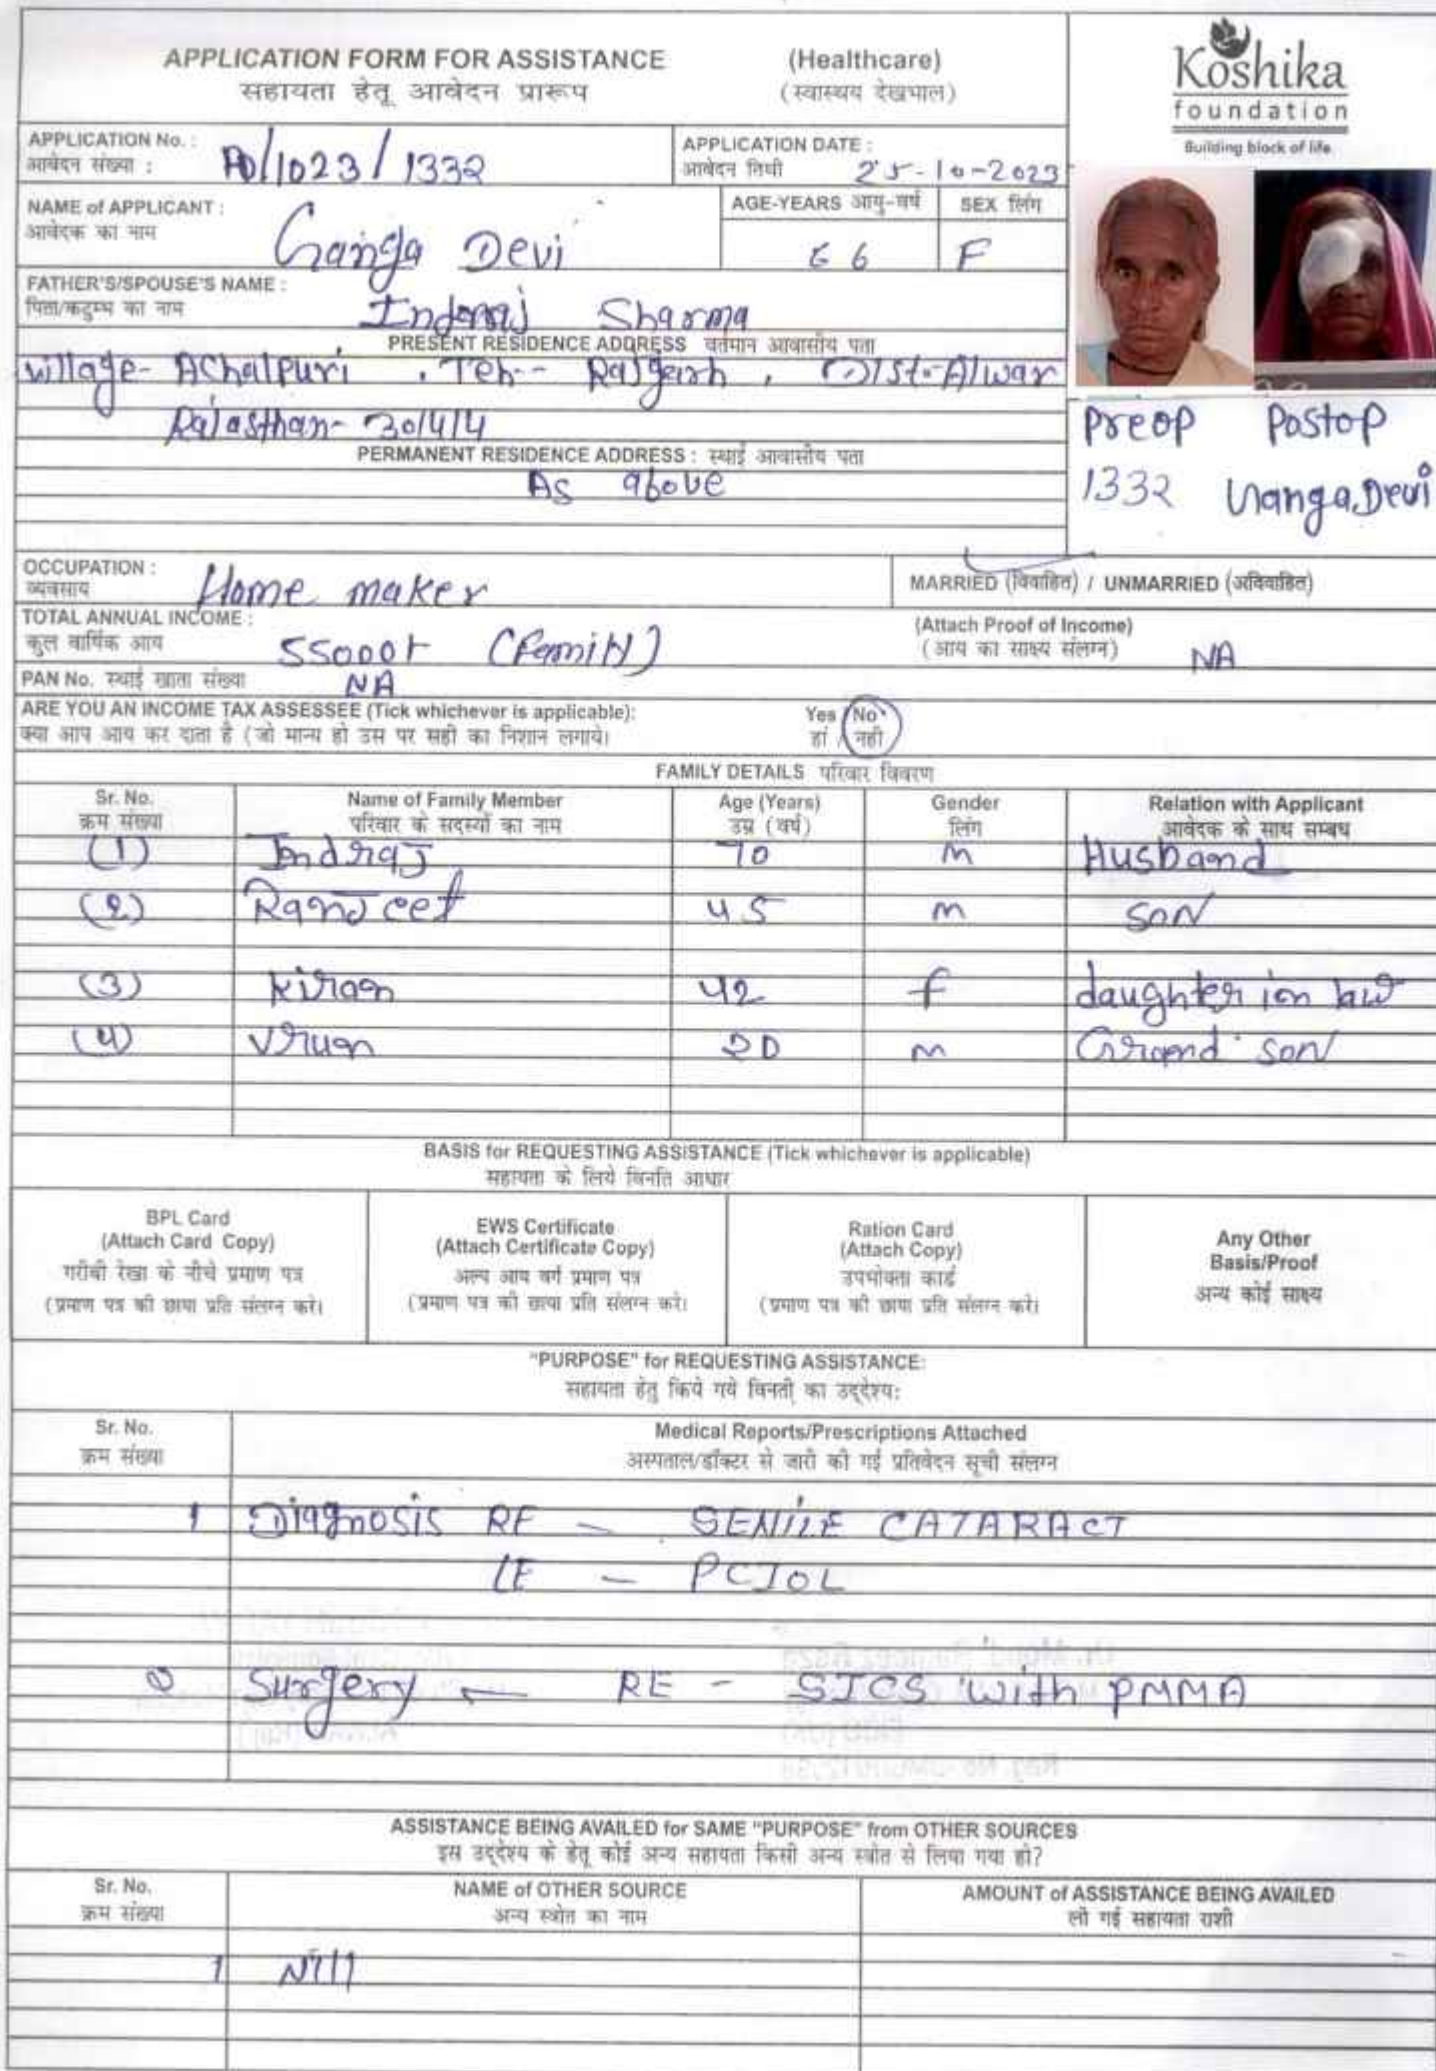 APPLICATION FORM FOR ASSISTANCE (Healthcare)
सहायता हेतू आवेदन प्रारूप (स्वास्थय देखभाल)
Koshika
foundation
Building block of life.
APPLICATION No. :
आवेदन संख्या :
1023/1332
APPLICATION DATE :
आवेदन तिथी
25-10-2023
NAME of APPLICANT :
आवेदक का नाम
Ganga Devi
AGE-YEARS आयु-वर्ष
66
SEX लिंग
F
FATHER'S/SPOUSE'S NAME :
पिता/कटुम्ब का नाम
Indraj Sharma
PRESENT RESIDENCE ADDRESS वर्तमान आवासीय पता
village- AChalpuri , Teh-- Rajgarh , Dist-Alwar
Rajasthan- 301414
PERMANENT RESIDENCE ADDRESS : स्थाई आवासीय पता
As above
Preop Postop
1332 Ganga Devi
OCCUPATION :
व्यवसाय
Home maker
MARRIED (विवाहित) / UNMARRIED (अविवाहित)
TOTAL ANNUAL INCOME :
कुल वार्षिक आय
(Attach Proof of Income)
(आय का साक्ष्य संलग्न)
NA
PAN No. स्थाई खाता संख्या
NA
ARE YOU AN INCOME TAX ASSESSEE (Tick whichever is applicable):
क्या आप आय कर दाता है (जो मान्य हो उस पर सही का निशान लगाये।
Yes / No
हां / नही
FAMILY DETAILS परिवार विवरण
Sr. No. Name of Family Member Age (Years) Gender Relation with Applicant
क्रम संख्या परिवार के सदस्यों का नाम उम्र (वर्ष) लिंग आवेदक के साथ सम्बध
(1) Indraj 70 m Husband
(2) Ranjeet 45 m SON
(3) kiran 42 f daughter ion law
(4) Vrun 20 m Grand son
BASIS for REQUESTING ASSISTANCE (Tick whichever is applicable)
सहायता के लिये विनति आधार
BPL Card
(Attach Card Copy)
गरीबी रेखा के नीचे प्रमाण पत्र
(प्रमाण पत्र की छाया प्रति संलग्न करे।
EWS Certificate
(Attach Certificate Copy)
अल्प आय वर्ग प्रमाण पत्र
(प्रमाण पत्र की छाया प्रति संलग्न करे।
Ration Card
(Attach Copy)
उपभोक्ता कार्ड
(प्रमाण पत्र की छाया प्रति संलग्न करे।
Any Other
Basis/Proof
अन्य कोई साक्ष्य
"PURPOSE" for REQUESTING ASSISTANCE:
सहायता हेतु किये गये विनती का उद्देश्य:
Sr. No. Medical Reports/Prescriptions Attached
क्रम संख्या अस्पताल/डॉक्टर से जारी की गई प्रतिवेदन सूची संलग्न
1 Diagnosis RE - SENILE CATARACT
LE - PCIOL
2 Surgery - RE - SICS with PMMA
ASSISTANCE BEING AVAILED for SAME "PURPOSE" from OTHER SOURCES
इस उद्देश्य के हेतू कोई अन्य सहायता किसी अन्य स्त्रोत से लिया गया हो?
Sr. No. NAME of OTHER SOURCE AMOUNT of ASSISTANCE BEING AVAILED
क्रम संख्या अन्य स्त्रोत का नाम ली गई सहायता राशी
1 Nill